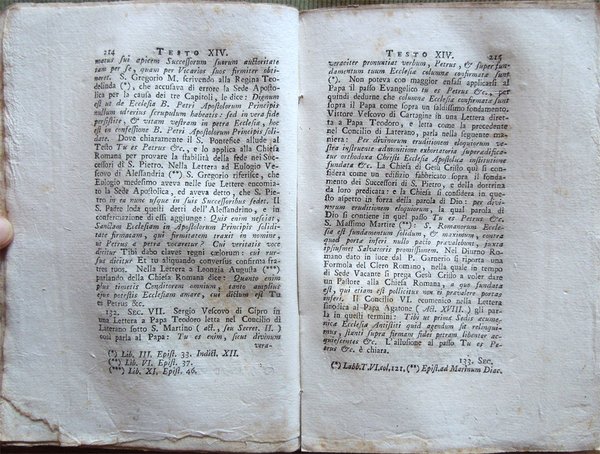 214 TESTO XIV.
matus sui apicem Successorum suorum auctoritate
tam per se, quam per Vicarios suos firmiter obti-
neret. S. Gregorio M. scrivendo alla Regina Teo-
delinda (*), che accusava di errore la Sede Aposto-
lica per la causa dei tre Capitoli, le dice: Dignum
est ut de Ecclesia B. Petri Apostolorum Principis
nullum ulterius scrupulum habeatis: sed in vera fide
persistite, & vitam vestram in petra Ecclesiæ, hoc
est in confessione B. Petri Apostolorum Principis soli-
date. Dove chiaramente il S. Pontefice allude al
Testo Tu es Petrus &c., e lo applica alla Chiesa
Romana per provare la stabilità della fede nei Suc-
cessori di S. Pietro. Nella Lettera ad Eulogio Ve-
scovo di Alessandria (**) S. Gregorio riferisce, che
Eulogio medesimo aveva nelle sue Lettere encomia-
ta la Sede Apostolica, ed aveva detto, che S. Pie-
tro in ea nunc usque in suis Successoribus sedet. Il
S. Padre loda questi detti dell' Alessandrino, e in
confermazione di essi aggiunge: Quis enim nesciat,
Sanctam Ecclesiam in Apostolorum Principis solidi-
tate firmatam, qui firmitatem traxit in nomine,
ut Petrus a petra vocaretur? Cui veritatis voce
dicitur Tibi dabo claves regni cælorum: cui rur-
sus dicitur Et tu aliquando conversus confirma fra-
tres tuos. Nella Lettera a Leonzia Augusta (***)
parlando della Chiesa Romana dice: Quanto enim
plus timetis Conditorem omnium, tanto amplius
ejus potestis Ecclesiam amare, cui dictum est Tu
es Petrus &c.
132. SEC. VII. Sergio Vescovo di Cipro in
una Lettera a Papa Teodoro letta nel Concilio di
Laterano sotto S. Martino (Act., seu Secret. II.)
così parla al Papa: Tu es enim, sicut divinum
vera-
(*) Lib. III. Epist. 33. Indict. XII.
(**) Lib. VI. Epist. 37.
(***) Lib. XI. Epist. 46.
TESTO XIV. 215
veraciter pronuntiat verbum, Petrus, & super fun-
damentum tuum Ecclesiæ columnæ confirmatæ sunt
(*). Non poteva con maggior enfasi applicarsi al
Papa il passo Evangelico tu es Petrus &c., per
quindi dedurne che colonne Ecclesiæ confirmatæ sunt
sopra il Papa come sopra un saldissimo fondamento.
Vittore Vescovo di Cartagine in una Lettera diret-
ta a Papa Teodoro, e letta come la precedente
nel Concilio di Laterano, parla nella seguente ma-
niera: Per divinorum eruditionem eloquiorum ve-
stra instruente admonitione exhortatoria superædifica-
tur orthodoxa Christi Ecclesia Apostolica institutione
fundata &c. La Chiesa di Gesù Cristo qui si consi-
dera come un edifizio fabbricato sopra il fonda-
mento dei Successori di S. Pietro, e della dottrina
da loro predicata: e la Chiesa si considera in que-
sto aspetto in forza della parola di Dio: per divi-
norum eruditionem eloquiorum, la qual parola di
Dio si contiene in quel passo Tu es Petrus &c.
S. Massimo Martire (**): S. Romanorum Ecclesia
est fundamentum solidum, & immotum, contra
quod porta inferi nullo pacto prævalebunt, juxta
ipsius Salvatoris promissionem. Nel Diurno Roma-
no dato in luce dal P. Garnerio si riporta una
Formola del Clero Romano, nella quale in tempo
di Sede Vacante si prega Gesù Cristo a voler dare
un Pastore alla Chiesa Romana, a quo fundata
est, qui etiam est pollicitus non ei prævalere portas
inferi. Il Concilio VI. ecumenico nella Lettera
sinodica al Papa Agatone (Act. XVIII.) gli par-
la in questi termini: Tibi ut primæ Sedis œcume-
nicæ Ecclesiæ Antistiti quid agendum sit relinqui-
mus, stanti supra firmam fidei petram libenter ac-
quiescentes &c. L'allusione al passo Tu es Pe-
trus &c. è chiara.
133. SEC.
(*) Labb.T.VI.col.121.(**) Epist.ad Marinum Diac.